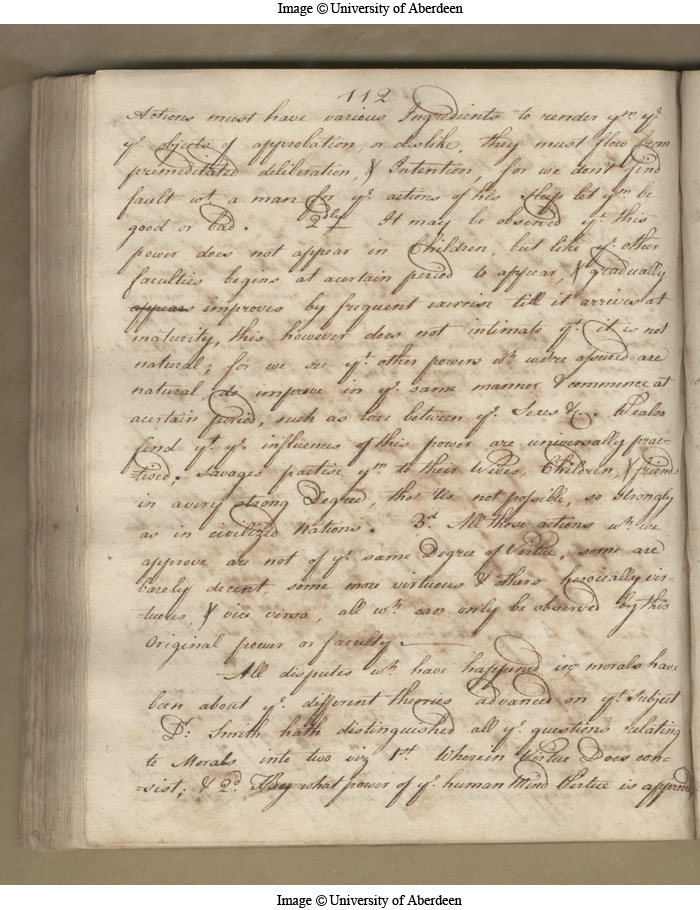 Image © University of Aberdeen
112
Actions must have various Ingredients to render ym ye
ye objects of approbation, or dislike, they must flow from
premeditated deliberation, & Intention, for we don't find
fault wt a man for ye actions of his sleep let ym be
good or bad. 2dly It may be observed yt this
power does not appear in Children, but like ye other
faculties begins at acertain period to appear, & gradually
appears improves by frequent exercise till it arrives at
maturity, this however does not intimate yt it is not
natural; for we see yt other powers wh we're assured are
natural do improve in ye same manner & commence at
acertain period, such as love between ye Sexes &c. We also
find yt ye influences of this power are universally prac-
-tised. Savages partise ym to their Wives, Children, & friends
in avery strong Degree, tho' tis not possible, so strongly
as in civilized Nations. 3d All those actions wh we
approve are not of ye same Degree of Virtue, some are
barely decent, some more virtuous & others heroically vir-
tuous, & vice versa, all wh can only be observed by this
Original power or faculty
All disputes wh have happened in morals have
been about ye different theories advanced on yt subject
Dr Smith hath distinguished all ye questions relating
to Morals into two viz 1st Wherein Virtue Does con-
-sist; & 2d By what power of ye human Mind Virtue is
Image © University of Aberdeen